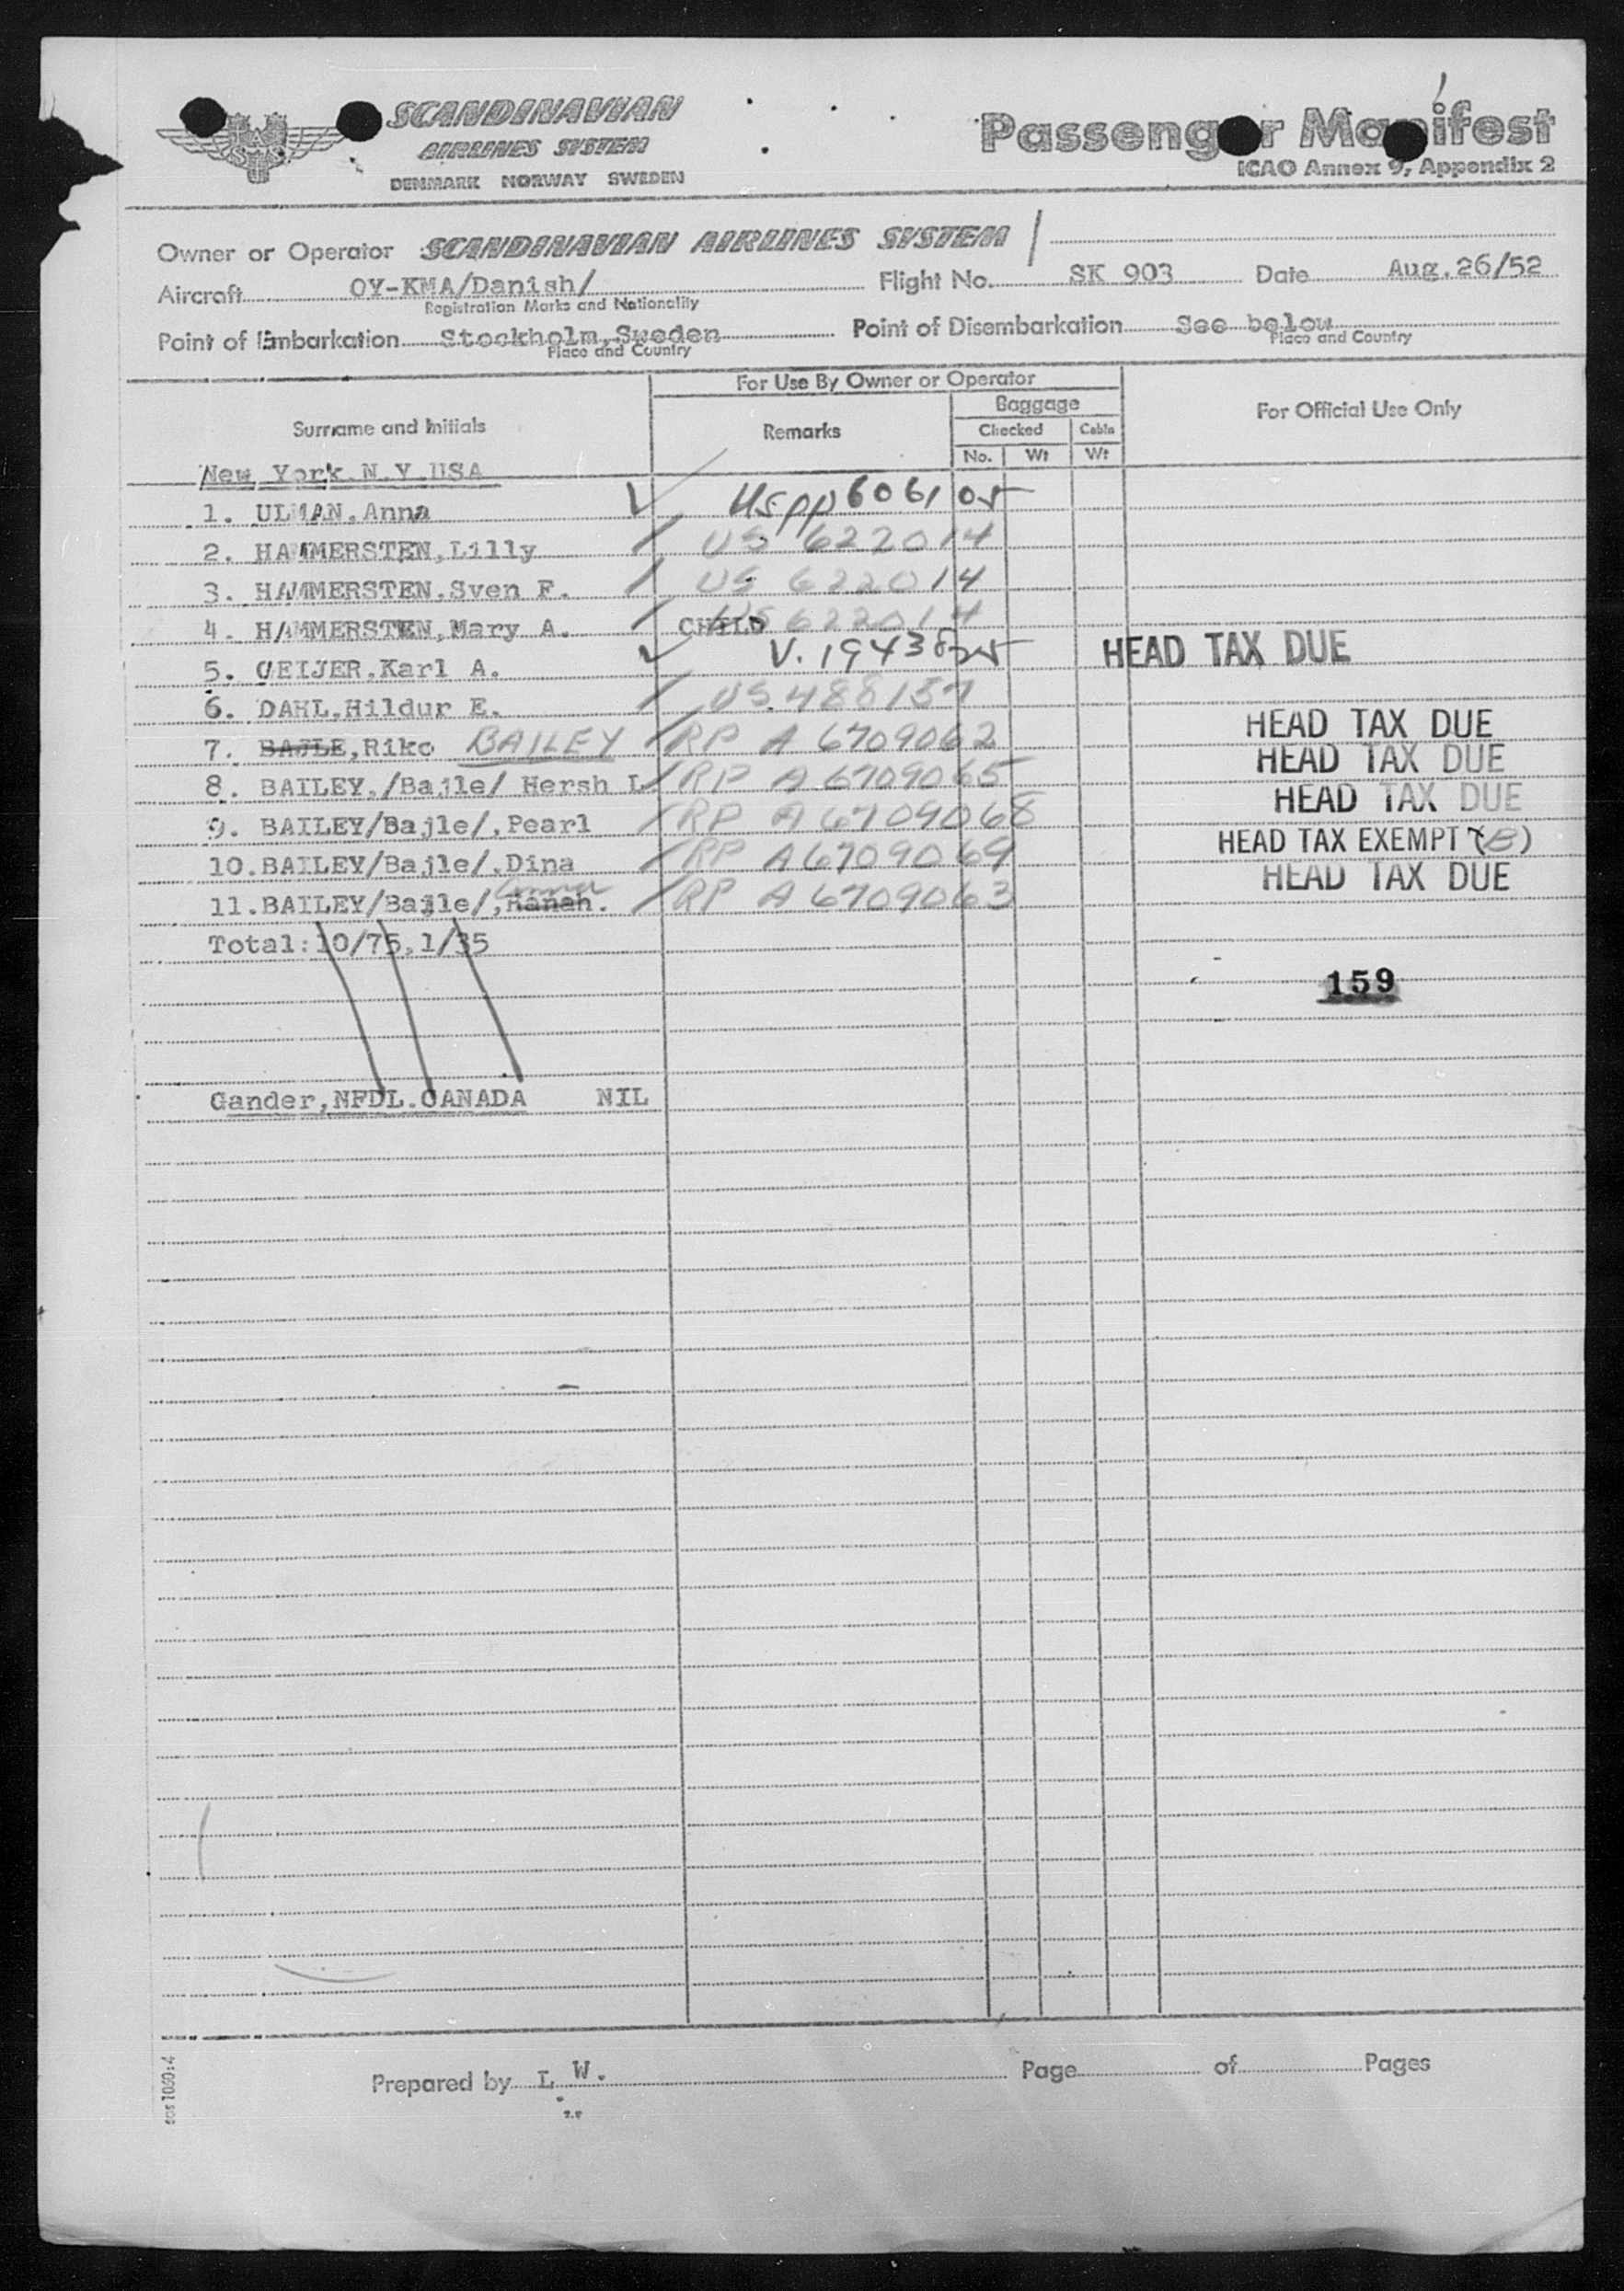 SCANDINAVIAN
AIRLINES SYSTEM
DENMARK NORWAY SWEDEN
Passenger Manifest
ICAO Annex 9, Appendix 2
Owner or Operator SCANDINAVIAN AIRLINES SYSTEM
Aircraft OY-KMA/Danish/ Flight No. SK 903 Date Aug. 26/52
Registration Marks and Nationality
Point of Embarkation Stockholm, Sweden Point of Disembarkation See below
Place and Country Place and Country
For Use By Owner or Operator
Surname and Initials Remarks Baggage For Official Use Only
Checked Cabin
No. Wt Wt
New York.N.Y.USA
1. ULMAN.Anna USPP 606105
2. HAMMERSTEN,Lilly US 622014
3. HAMMERSTEN.Sven F. US 622014
4. HAMMERSTEN,Mary A. CHILD US 622014
5. GEIJER.Karl A. V. 194 HEAD TAX DUE
6. DAHL,Hildur E. US. 488157
7. BAJLE,Riko BAILEY RP A 6709062 HEAD TAX DUE
8. BAILEY,/Bajle/ Hersh L RP A 6709065 HEAD TAX DUE
9. BAILEY/Bajle/,Pearl RP A 6709068 HEAD TAX DUE
10.BAILEY/Bajle/,Dina RP A6709069 HEAD TAX EXEMPT
11.BAILEY/Bajle/,Hanah. RP A 6709063 HEAD TAX DUE
Total:10/75,1/35
159
Gander,NFDL.CANADA NIL
Prepared by L W. Page of Pages